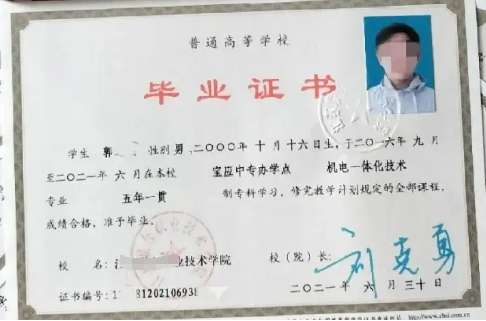 普通高等学校
毕业证书
学生 郭 性别 男,二〇〇〇年 十月 十六日生,于二〇一六年 九月
至二〇二一年 六月在本校 宝应中专办学点 机电一体化技术
专业 五年一贯 制专科学习,修完教学计划规定的全部课程,
成绩合格,准予毕业。
校 名: 业技术学院 校(院)长: 刘克勇
证书编号: 8120210693 二〇二一年 六月三十日